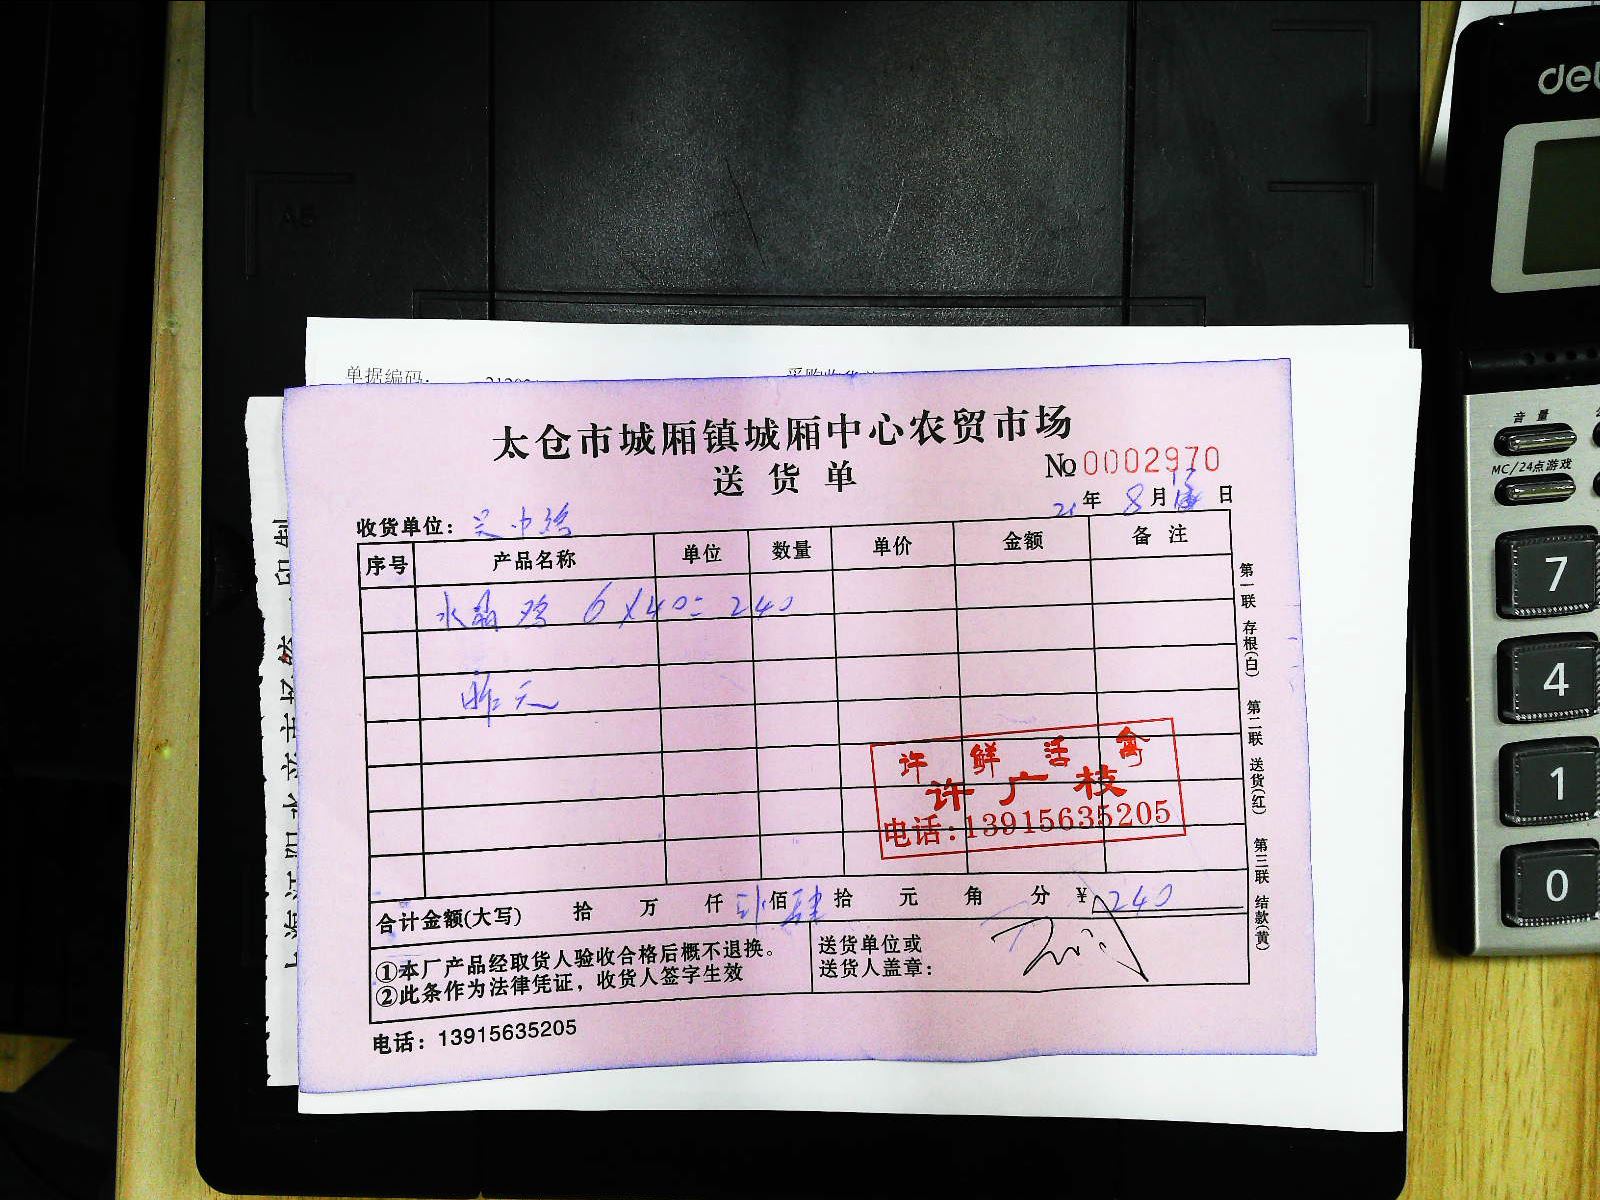 del
A5
音量
MC/24点游戏
7
4
1
0
单据编码:
太仓市城厢镇城厢中心农贸市场
送货单
No 0002970
21年8月 日
收货单位:
序号 产品名称 单位 数量 单价 金额 备注
水晶鸡 6×40=240
昨天
许鲜活禽
许广枝
电话:13915635205
合计金额(大写) 拾 万 仟 佰肆拾 元 角 分 ¥240
①本厂产品经取货人验收合格后概不退换。
②此条作为法律凭证，收货人签字生效
送货单位或
送货人盖章:
电话: 13915635205
第一联 存根(白) 第二联 送货(红) 第三联 结款(黄)